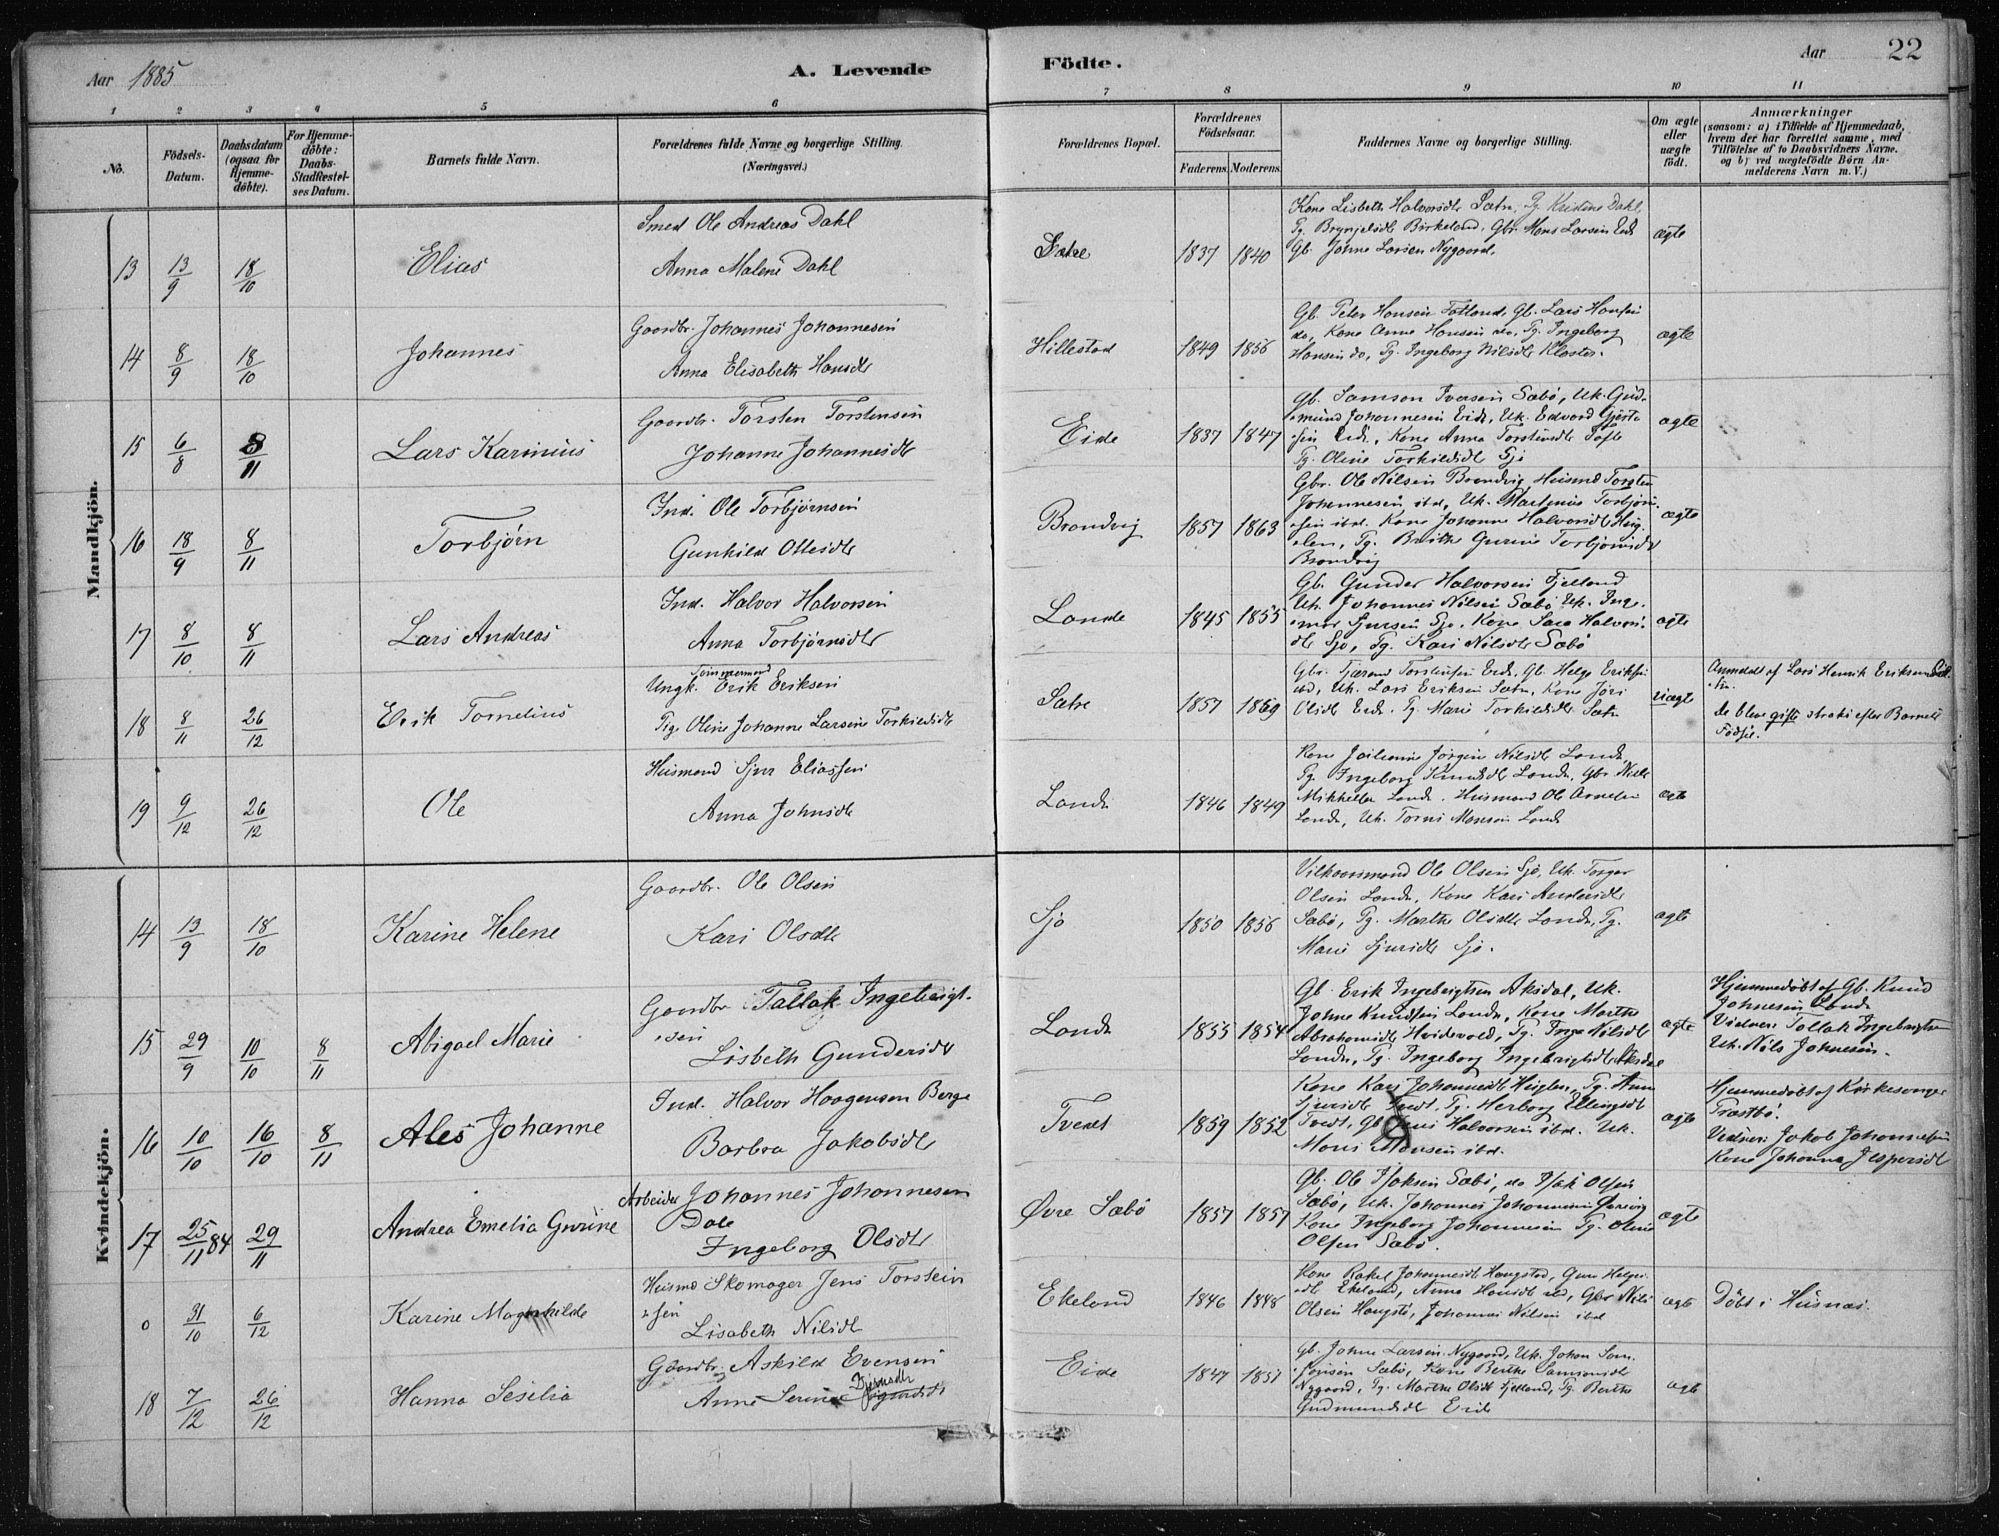 Aar 1885
A. Levende
Födte.
Aar
22
1 2 3 4 5 6 7 8 9 10 11
No.
Födsels-Datum.
Daabsdatum (ogsaa for Hjemme-döbte).
For Hjemme-döbte: Daabs-Stadfæstel-ses Datum.
Barnets fulde Navn.
Forældrenes fulde Navne og borgerlige Stilling. (Næringsvei.)
Forældrenes Bopæl.
Forældrenes Födselsaar.
Faderens. Moderens.
Faddernes Navne og borgerlige Stilling.
Om ægte eller uægte födt.
Anmærkninger
(saasom: a) i Tilfælde af Hjemmedaab,
hvem der har forrettet samme, med
Tilföielse af to Daabsvidners Navne.
og b) ved uægtefödte Börn An-
melderens Navn m. V.)
Mandkjön.
13 13/9 18/10 Elias
Smed Ole Andreas Dahl
Anna Malene Dahl
Sætre 1837 1840
Kone Lisbeth Halvorsdt Sætre, Pg. Kristine Dahl,
Pg. Brynjelsdt Birkeland, Gbr. Mons Larsen Eide
Gb. Johne Larsen Nygaard.
ægte
14 8/9 18/10 Johannes
Gaardbr. Johannes Johannesen
Anna Elisabeth Hansdt
Hillestad 1849 1856
Gb. Peter Hansen Totland, Gb. Lars Hansen
do, Kone Anne Hansen do, Pg. Ingeborg
Hansen do, Pg. Ingeborg Nilsdt Kloster.
ægte
15 6/8 8/11 Lars Karinius
Gaardbr. Torsten Torstensen
Johanne Johannesdt
Eide 1837 1847
Gb. Samson Iversen Sæbø, Uk. Gud-
mund Johannesen Eide, Uk. Edvard
sen Eide, Kone Anna Torstensdt
Pg. Oline Torkildsdt Sjo
ægte
16 18/9 8/11 Torbjørn
Ind. Ole Torbjørnsen
Gunhild Ottesdt
Brandvig 1857 1863
Gbr. Ole Nilsen Brandvig, Husmd Torsten
Johannesen ibd, Uk. Martinus Torbjørn-
sen ibd. Kone Johanne Halvorsdt Heig-
len, Pg. Brithe Gurine Torbjørnsdt
Brandvig
ægte
17 8/10 8/11 Lars Andreas
Ind. Halvor Halvorsen
Anna Torbjørnsdt
Lande 1845 1855
Gb. Gunder Halvorsen Fjelland
Uk. Johannes Nilsen Sæbø, Uk. Inge-
mar Sjursen Sjo, Kone Sara Halvors-
dt Sjo, Pg. Kari Nilsdt Sæbø
ægte
18 8/11 26/12 Erik Tornelius
Tømmermand
Ungk. Erik Eriksen
Pig. Oline Johanne Larsine Torkildsdt
Sætre 1857 1869
Gbr. Torstensen Eide, Gb. Helge Eriksen
ibd, Uk. Lars Eriksen Sætre, Kone Jóri
Olsdt Eide. Pg. Mari Torkildsdt Sætre
uægte
Anmeldt af Lars Henrik Eriksen
De bleve gifte straks efter Barnets
Fødsel.
19 9/12 26/12 Ole
Husmand Sjur Eliassen
Anna Johnsdt
Lande 1846 1849
Kone Jørgine Nilsdt Lande
Pg. Ingeborg Knudsdt Lande, Gbr. Nils
Mikkelsen Lande. Husmand Ole Arnesen
Lande, Uk. Monsen Lande
ægte
Kvindekjön.
14 13/9 18/10 Karine Helene
Gaardbr. Ole Olsen
Kari Olsdt
Sjo 1850 1856
Vilkaarsmand Ole Olsen Sjø, Uk. Torger
Olsen Lande, Kone Kari Andersdt
Sæbø, Pg. Marthe Olsdt Lande, Pg.
Marie Sjursdt Sjo.
ægte
15 29/9 10/10 8/11 Abigael Marie
Gaardbr Tallak Ingebrigt-
sen
Lisbeth Gundersdt
Lande 1855 1854
Gb. Erik Ingebrigtsen Aksdal, Uk.
Johne Knudsen Lande, Kone Marthe
Abrahamsdt Hviderold, Pg. Inge Nilsdt
Lande, Pg. Ingeborg Ingebrigtsdt Aksdal
ægte
Hjemmedøbt af Gb. Knud
Johnesen Lande
Vidner: Tallak Ingebrigtsen
Uk. Nils Johnesen.
16 10/10 16/10 8/11 Ales Johanne
Ind. Halvor Haagensen Berge
Barbra Jakobsdt
Tvedt 1859 1852
Kone Kari Johannesdt Heiglen, Pg. Anna
Sjursdt Tvedt, Pg. Herborg Ellingsdt
Tvedt, Gb. Halvorsen ibd. Uk.
Mons Monsen ibd.
ægte
Hjemmedøbt af Kirkesanger
Trastbø.
Vidner: Jakob Johannesen
Kone Johanna Jespersdt
17 25/11 84 29/11 Andrea Emelia Gurine
Arbeider Johannes Johannesen
Dale
Ingeborg Olsdt
Øvre Sæbø 1857 1857
Gb. Ole Isaksen Sæbø, do Isak Olsen
Sæbø, Uk. Johannes Johannesen
Kone Ingeborg Johannesen Pg. Oline
Olsen Sæbø.
ægte
0 31/10 6/12 Karine Magnhilde
Husmd Skomager Jens Torstein
sen
Lisabeth Nilsdt
Ekeland 1846 1848
Kone Rakel Johannesdt Haugstad, Guro Helges-
dt Ekeland, Anna Hansdt ibd, Gbr Nils
Olsen Haugstø, Johannes Nilsen ibd
ægte
Døbt i Husnæs.
18 7/12 26/12 Hanna Sesilia
Gaardbr. Askild Evensen
Anne Serine
Eide 1847 1851
Gb. Johne Larsen Nygaard, Uk. Johan Sam-
sonsen Sæbø, Kone Berthe Samsonsdt
Nygaard, Pg. Marthe Olsdt Fjelland, Pg. Berthe
Gudmundsdt Eide
ægte